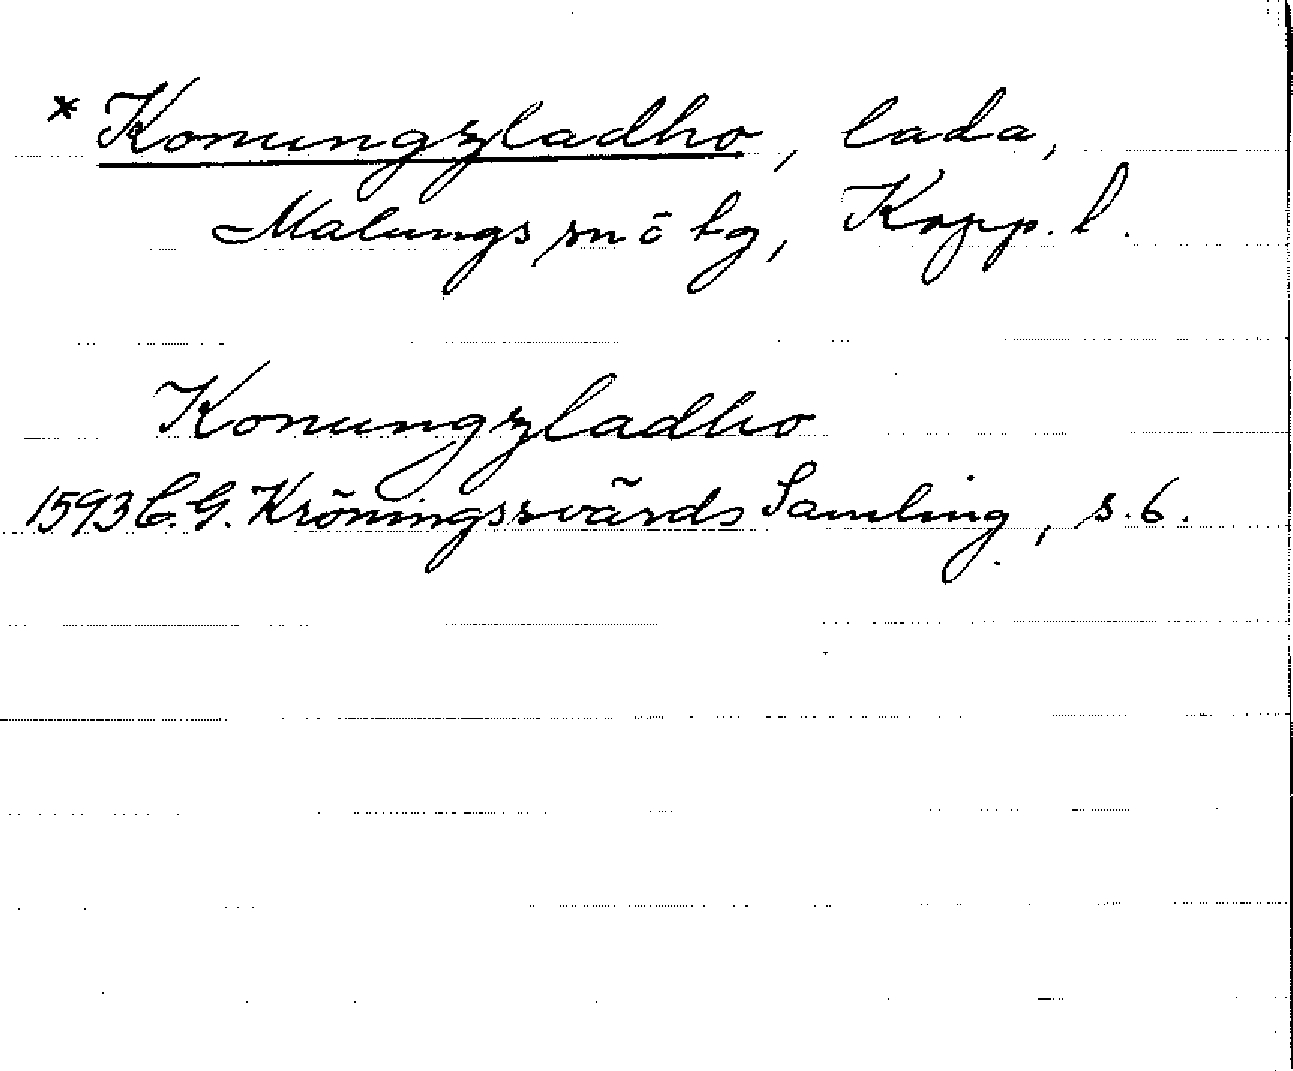 * Konungzladho, lada,
Malungs sn o tg, Kopp. l.
Konungzladho
1593 C. G. Kröningssvärds Samling, s. 6.